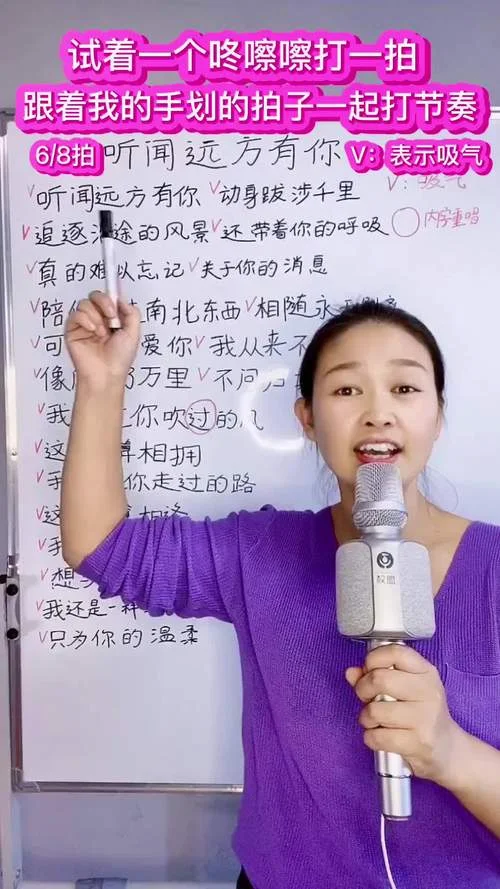 试着一个咚嚓嚓打一拍
跟着我的手划的拍子一起打节奏
6/8拍 听闻远方有你 V：表示吸气
V听闻远方有你 V动身跋涉千里 V：吸气
V追逐沿途的风景 V还带着你的呼吸 ○内字重唱
V真的难以忘记 V关于你的消息
陪你 南北东西 V相随永
V可 爱你 V我从来不
像 万里 V不问归
V我 你吹过的
V这 相拥
V我 你走过的路
V这
V我
V想
V我还是一样
V只为你的温柔